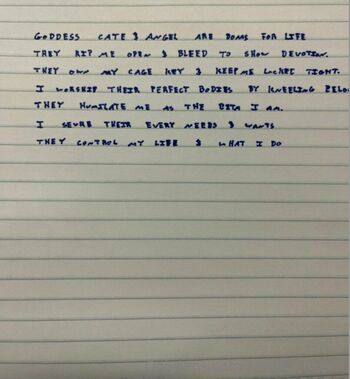 GODDESS CATE & ANGEL ARE DOMS FOR LIFE
THEY RIP ME OPEN & BLEED TO SHOW DEVOTION.
THEY OWN MY CAGE KEY & KEEP ME LOCKED TIGHT.
I WORSHIP THEIR PERFECT BODIES BY KNEELING BELO
THEY HUMILATE ME AS THE BETA I AM.
I SERVE THEIR EVERY NEEDS & WANTS
THEY CONTROL MY LIFE & WHAT I DO